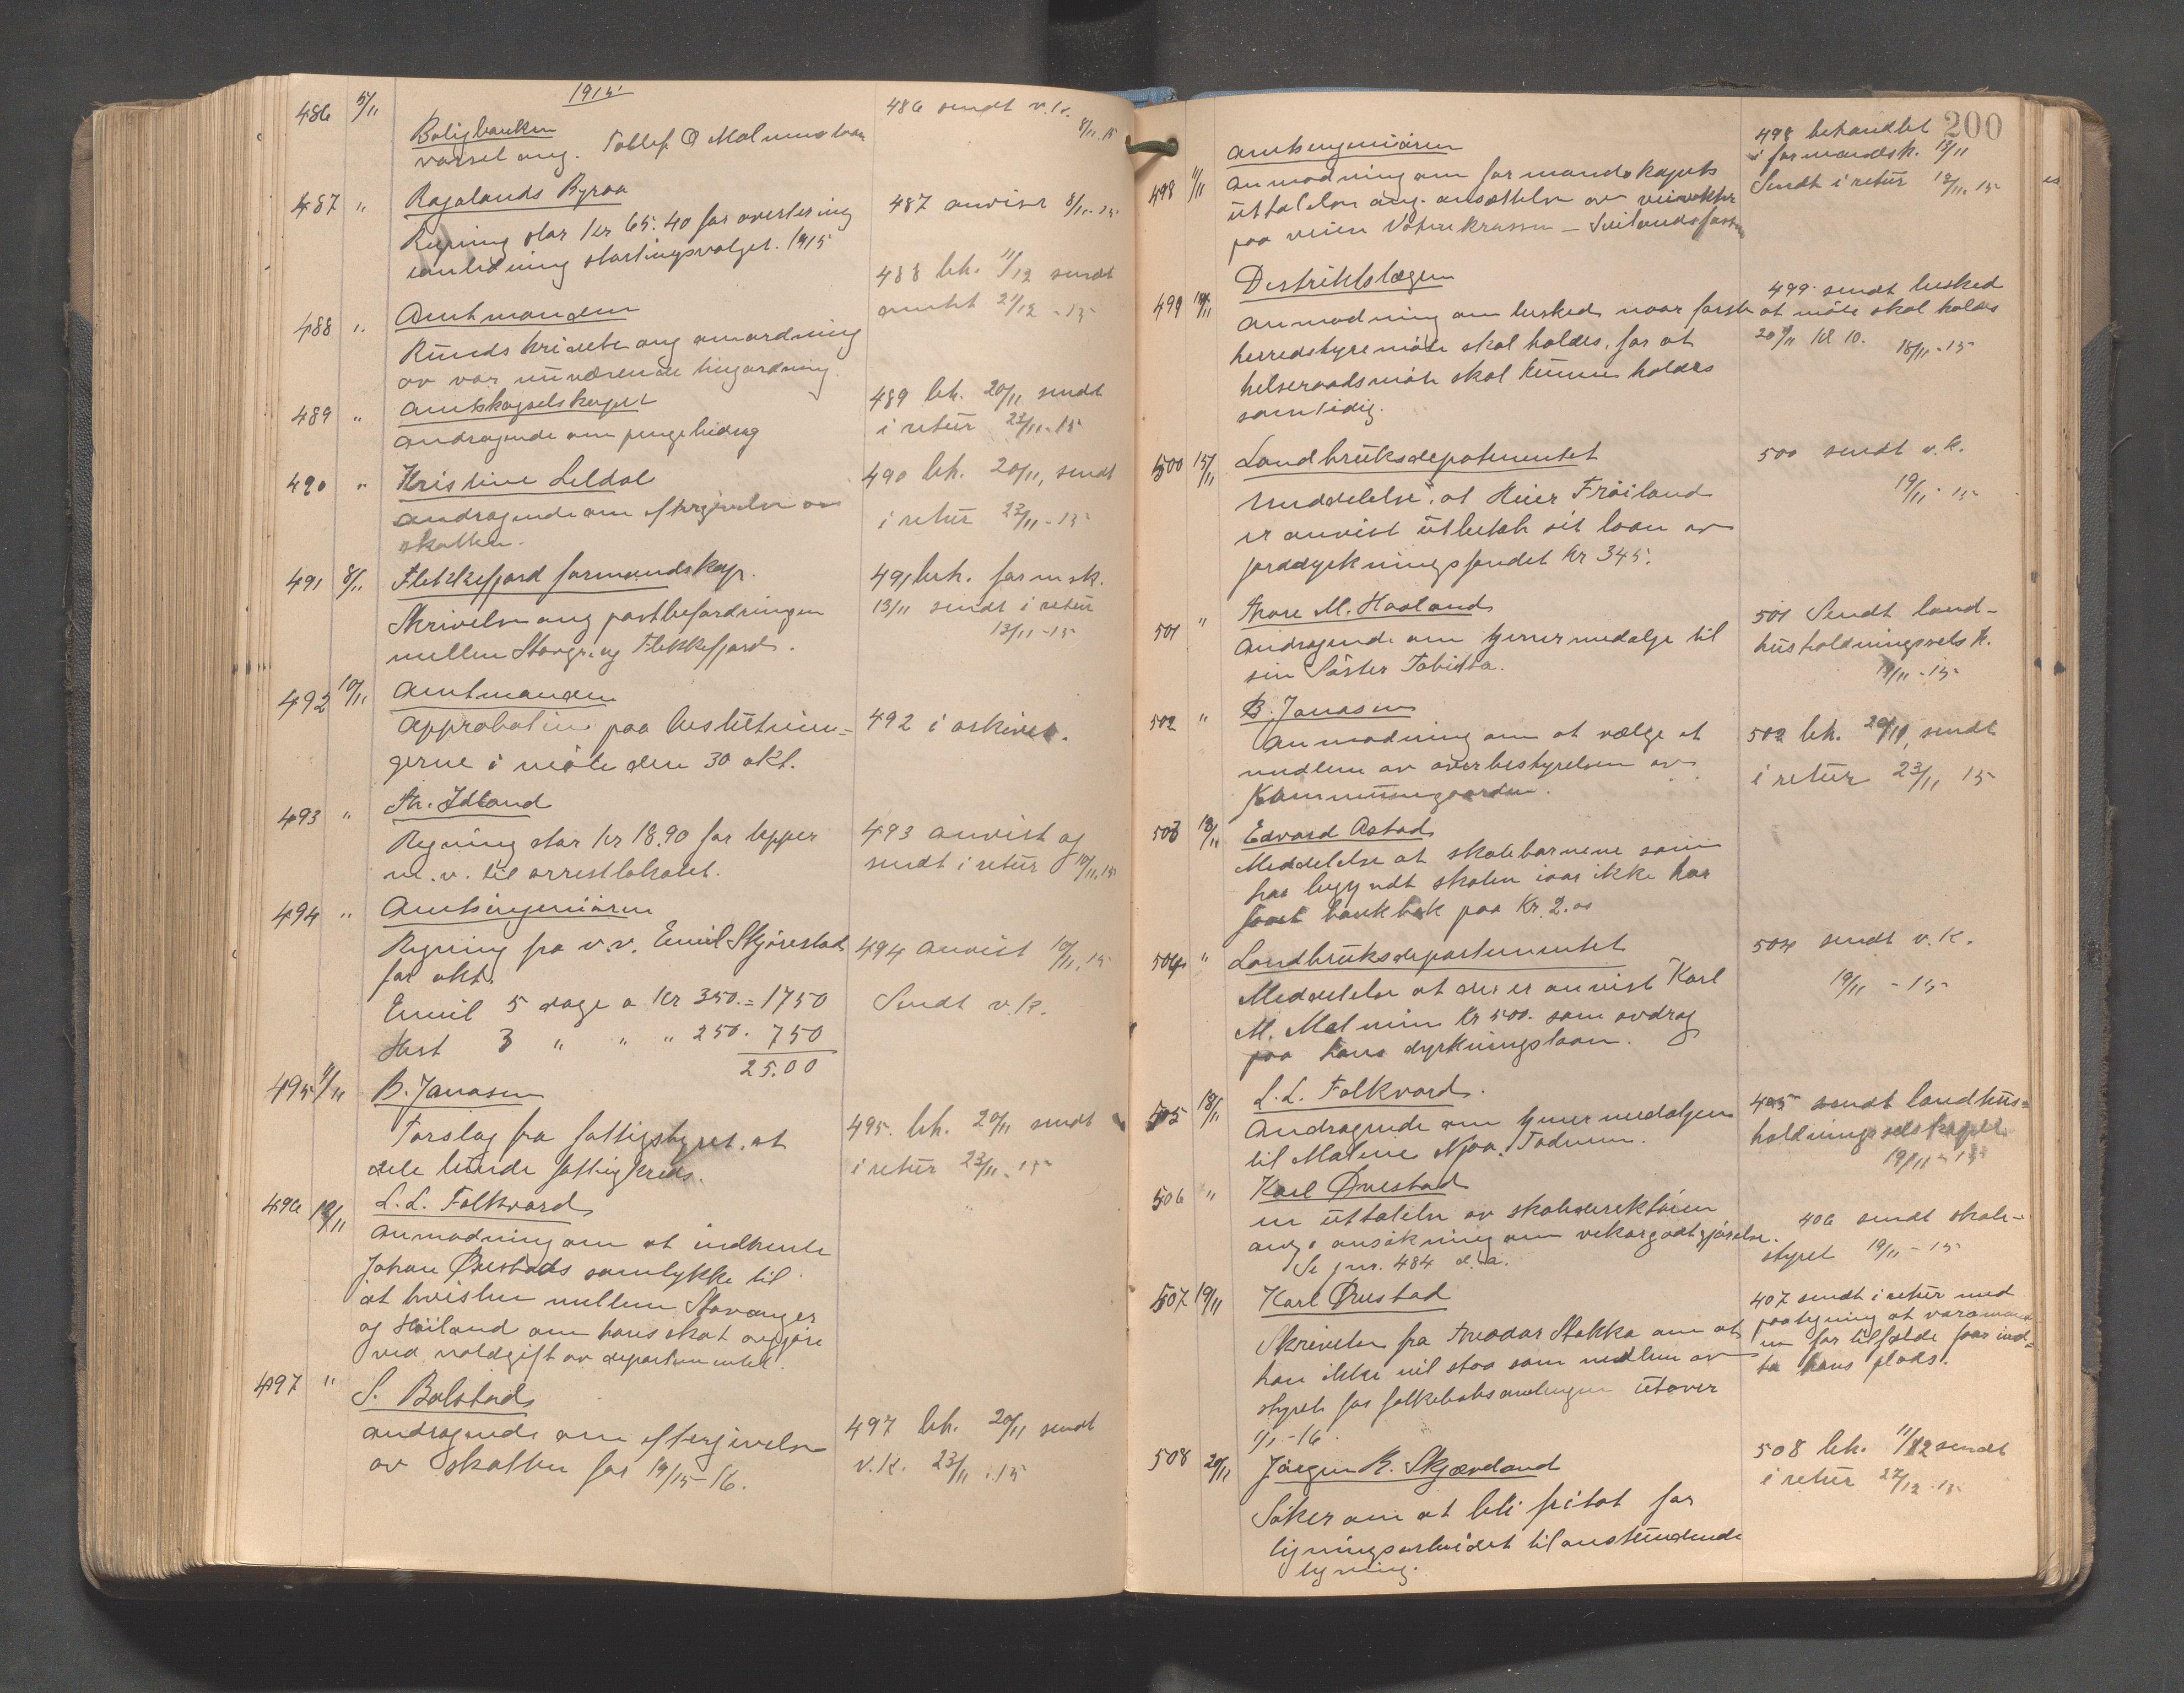 1915
486 5/11 Boligbanken
varsel ang. Tollef O Malmin laan
486 sendt v.k. 8/11.15
487 " Rogalands Byraa
Regning stor kr 65.40 for avertering
i anledning stortingsvalget. 1915
487 anvist 8/11-15
488 " Amtmanden
Rundskrivelse ang omordning
av vor nuværende
488 beh. 11/12 sendt
amtet 21/12 - 15
489 " Amtskogselskapet
andragende om pengebidrag
489 beh. 20/11 sendt
i retur 23/11-15
490 " Kristine Leldal
andragende om eftergivelse av
skatten.
490 beh. 20/11, sendt
i retur 23/11-15
491 8/11 Flekkefjord formandskap.
Skrivelse ang postbefordringen
mellem Stavgr. og Flekkefjord.
491 beh. formsk.
13/11 sendt i retur
13/11-15
492 10/11 Amtmanden
Approbation paa beslutnin=
gerne i møte den 30 okt.
492 i arkivet.
493 " Th. Idland
Regning stor kr 18.90 for tepper
m.v. til arrestlokalet.
493 anvist og
sendt i retur 10/11.15
494 " Amtsingeniøren
Regning fra v.v. Emil Skjørestad
for okt.
Emil 5 dage a kr 350. = 1750
Hest 3 " " " 250. 750
25.00
494 anvist 10/11.15
Sendt v.k.
495 11/11 B. Jonasen
Forslag fra fattigstyret, at
dele lunde fattigkreds.
495. beh. 20/11 sendt
i retur 23/11-15
496 12/11 L. L. Folkvord
anmodning om at indhente
Johan Øvestads samtykke til
at tvisten mellem Stavanger
og Høiland om hans skat avgjøres
ved voldgift av departementet.
497 " S. Bolstad
andragende om eftergivelse
av skatten for 19/15-16.
497 beh. 20/11 sendt
v.k. 23/11.15
200
498 11/11 Amtsingeniøren
Anmodning om formandskapets
uttalelse ang. ansættelse av veivokter
paa veien Vatnekrossen - Sviland
498 behandlet
i formandsk. 13/11
Sendt i retur 13/11.15
499 Distriktslægen
Anmodning om besked naar første
herredstyremøte skal holdes, for at
helseraadsmøte skal kunne holdes
samtidig.
499 sendt besked
at møte skal holdes
20/11 kl 10. 18/11-15
500 15/11 Landbruksdepatementet
Meddelelse at Meier Frøiland
er anvist utbetalt sit laan av
jorddyrkningsfondet kr 345.
500 sendt v.k.
19/11-15
501 " Tore M. Haaland
Andragende om tjenermedalje til
sin Søster Tabitta.
501 Sendt land-
husholdningselsk.
19/11-15
502 " B. Jonasen
Anmodning om at vælge et
medlem av overbestyrelsen av
Kommunegaarden.
502 beh. 20/11, sendt
i retur 23/11 15
503 18/11 Edvard Østad
Meddelelse at skolebarnene som
har begyndt skolen iaar ikke har
faaet bankbok paa Kr. 2.00
504 " Landbruksdepartementet
Meddelelse at der er anvist Karl
M. Malmin kr 500. som avdrag
paa hans dyrkningslaan.
504 sendt v.k.
19/11 - 15
505 18/11 L. L. Folkvord.
Andragende om tjenermedaljen
til Maline Njaa, Foduen.
405 sendt landhus=
holdningselskapet
19/11-15
506 " Karl Øvestad
en uttalelse av skoledirektøren
ang. ansøkning om vikargodtgjørelse.
Se jnr. 484 d.a.
406 sendt skole-
styret 19/11-15
507 19/11 Karl Øvestad
Skrivelse fra Theodor Stokka om at
han ikke vil staa som medlem av
styret for folkeboksamlingen utover
1/1-16.
407 sendt i retur med
paategning at varamand
en for tilfælde faar ind=
ta hans plads.
508 20/11 Jørgen K. Skjæveland
Søker om at bli fritat for
ligningsarbeidet til anstundende
ligning.
508 beh. 11/12 sendt
i retur 22/12-15